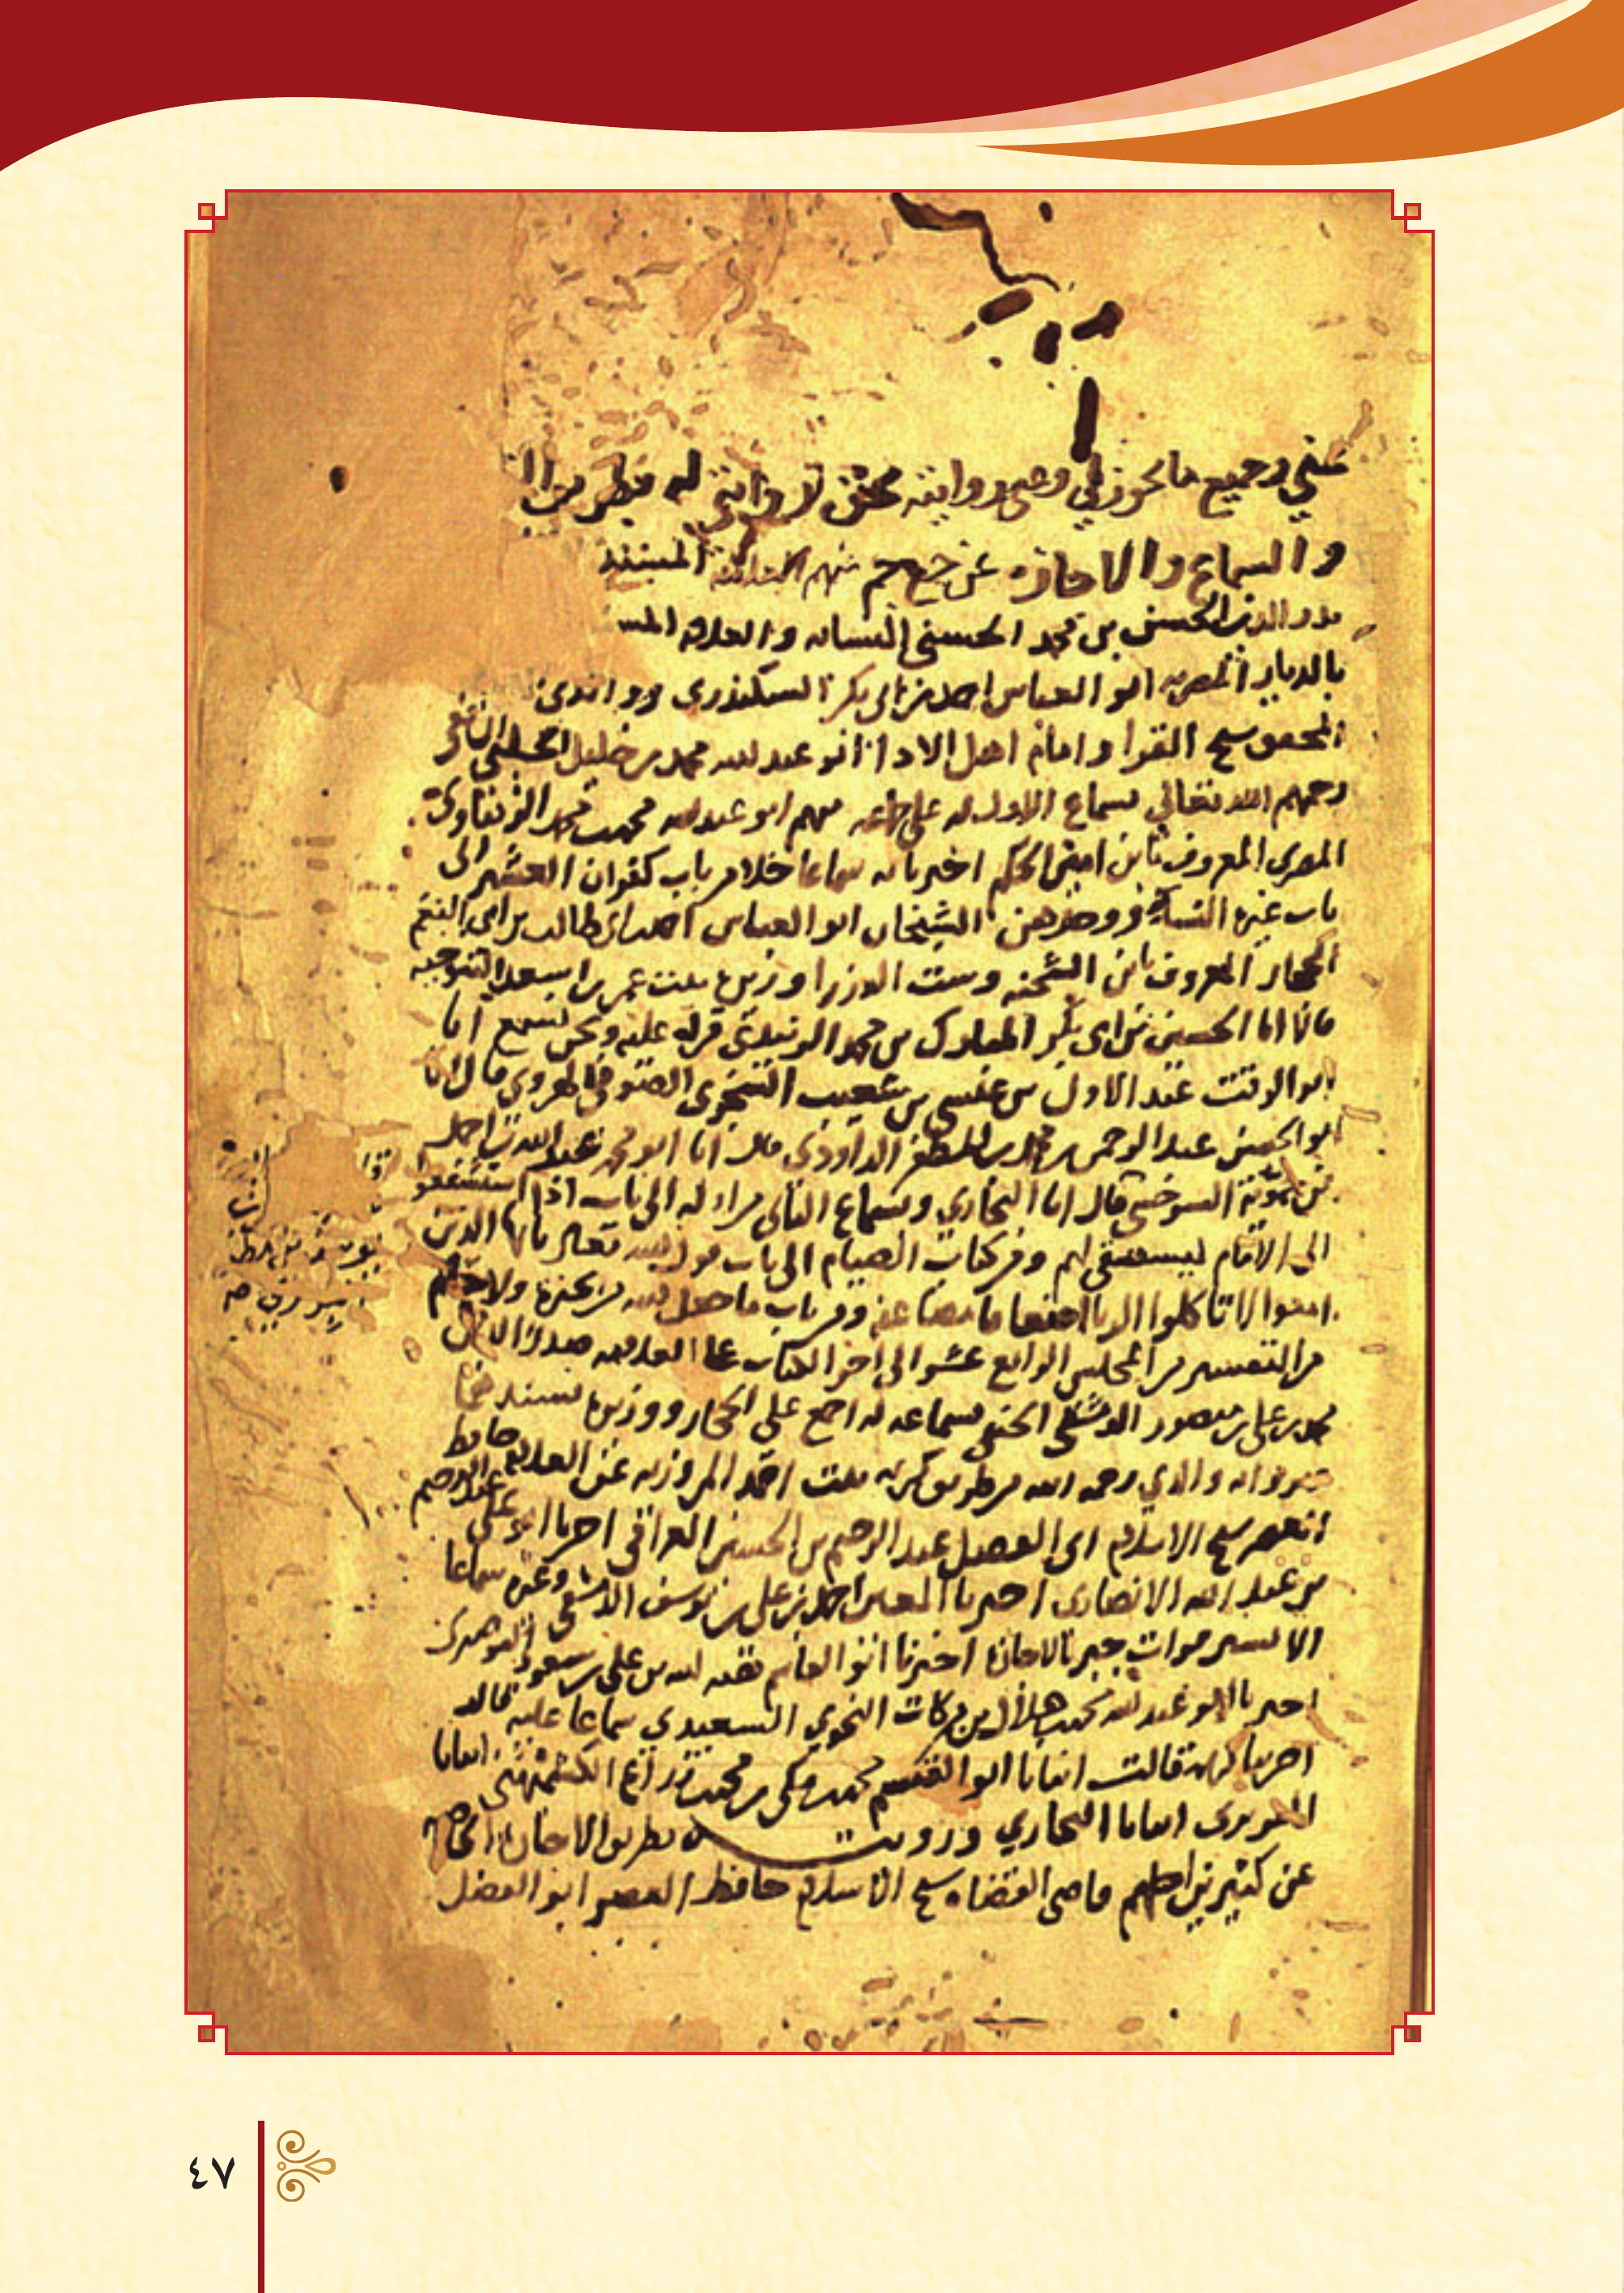 عني وجميع ما يجوز لي وعني روايته بحق روايتي له بطريق
والسماع والاجازة عن جمع جم منهم المسند
بدر الدين الحسن بن محمد الحسني النسابه والعلامه المسند
بالديار المصريه ابو العباس احمد بن ابي بكر السكندري
المحقق شيخ القرا وامام اهل الادا ابو عبد الله محمد بن خليل
رحمهم الله تعالى بسماع الاول له على جماعه منهم ابو عبد الله محمد بن محمد
المصري المعروف بابن امين الحكم اخبرنا به سماعا خلا من باب كفران العشير الى
باب غيرة النساء ووجدهن الشيخان ابو العباس احمد بن ابي طالب بن ابي النعم
الحجار المعروف بابن الشحنه وست الوزرا وزيره بنت عمر بن اسعد التنوخيه
قالا انا الحسين بن ابي بكر المبارك بن محمد الزبيدي قراه عليه ونحن نسمع انا
ابو الوقت عبد الاول بن عيسى بن شعيب السجزي الصوفي الهروي قال انا
ابو الحسن عبد الرحمن بن محمد بن المظفر الداودي قال انا ابو محمد عبد الله بن احمد
بن حمويه السرخسي قال انا البخاري وبسماع الثاني من اوله الى باب اذا استشفعوا
الى الامام ليستسقي لهم ومن كتاب الصيام الى باب قول الله تعالى يا ايها الذين
امنوا لا تاكلوا الربا اضعافا مضاعفه ومن باب ما جعل الله من بحيره ولا
من التفسير من المجلس الرابع عشر الى اخر الكتاب على العلامه صدر الدين
محمد بن علي بن منصور الدمشقي الحنفي بسماعه له اجمع على الحجار ووزيره بسندهما
والدي رحمه الله من طريق كريمه بنت احمد المروزيه عن العلامه حافظ
العصر شيخ الاسلام ابي الفضل عبد الرحيم بن الحسين العراقي اخبرنا ابو علي عبد الرحيم
بن عبد الله الانصاري اخبرنا المعين احمد بن علي بن يوسف الدمشقي وغيره سماعا
الا اليسير منه اخبرنا ابو القاسم هبه الله بن علي بن مسعود البوصيري
اخبرنا ابو عبد الله محمد بن هلال بن بركات النحوي السعيدي سماعا عليه قال
اخبرتنا كريمه قالت انبانا ابو الهيثم محمد بن مكي بن محمد بن زراع الكشميهني انبانا
الفربري انبانا البخاري ورويت بطريق الاجازه
عن كثيرين اجلهم قاضي القضاه شيخ الاسلام حافظ العصر ابو الفضل
٤٧